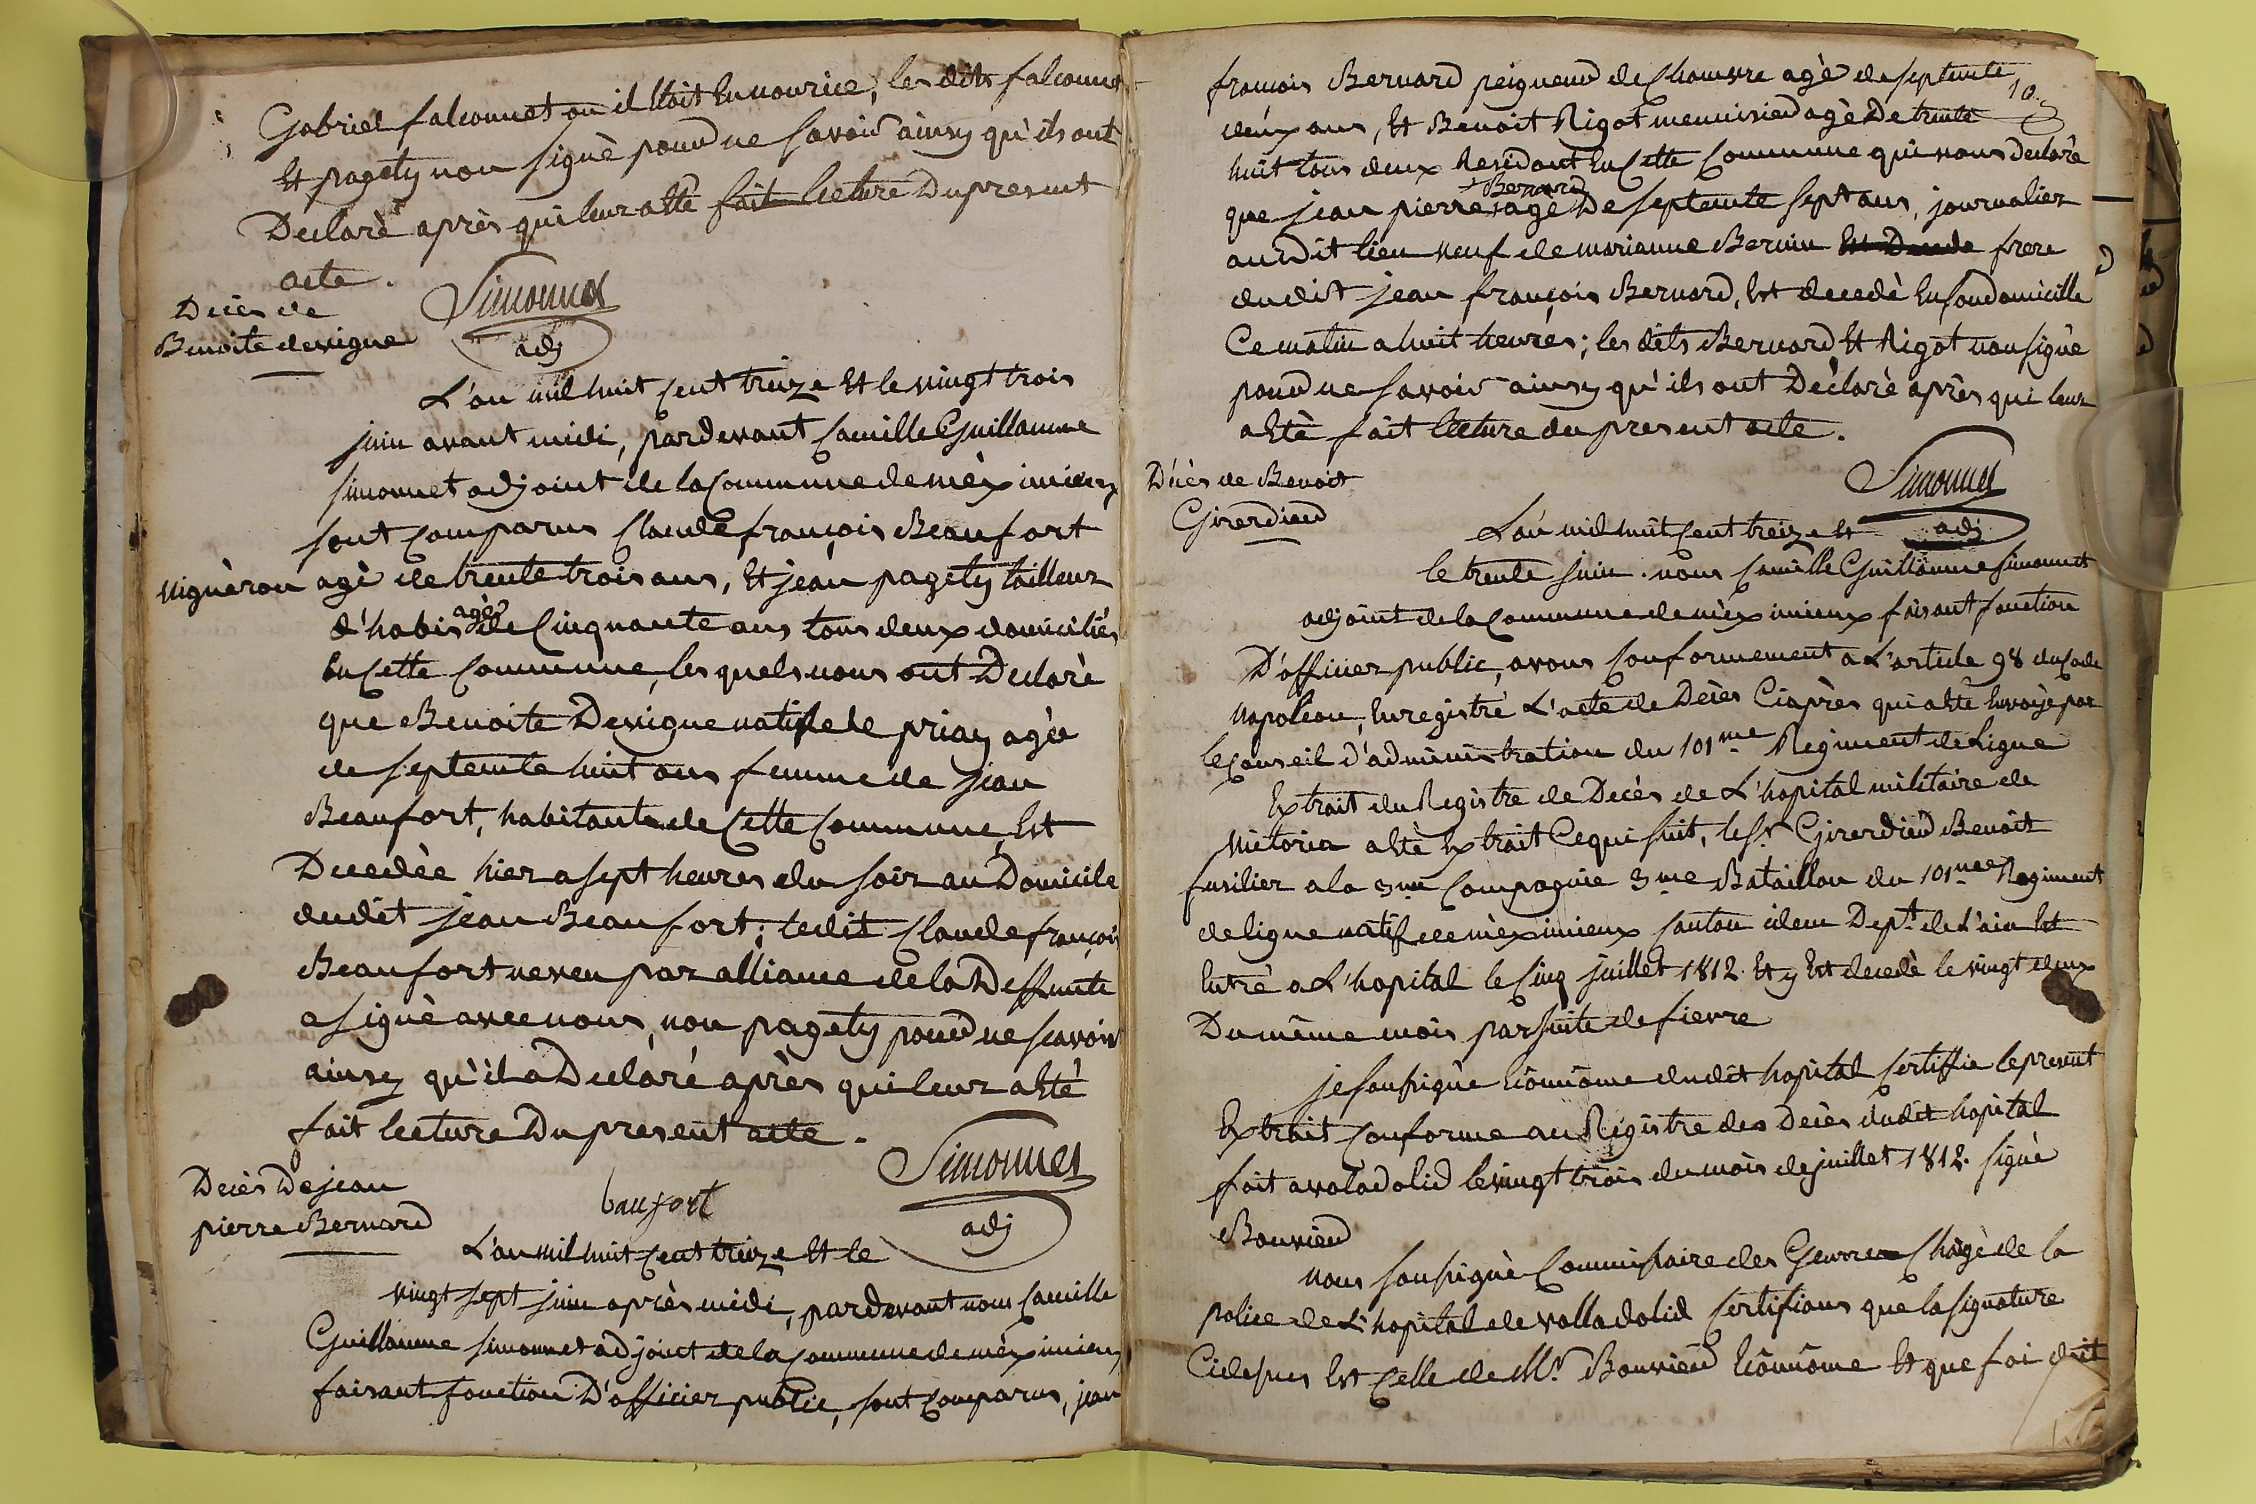 Gabriel falconnet ou il Etoit En nourice, les dits falconnet
Et pagety non signè pour ne savoir ainsy qu'ils ont
Declarè après qui leur a étè fait lecture Du present
acte.
Simonnet
adj
Decès de
Benoite devigne
L'an mil huit Cent treize Et le vingt trois
juin avant midi, pardevant Camille Guillaume
simonnet adjoint de la Commune de mèximieux
sont Comparus Claude françois Beaufort
vignèron agè de trente trois ans, Et jean pagety tailleur
d'habis agè de Cinquante ans tous deux domiciliés
En Cette Commune, les quels nous ont Declarè
que Benoite Devigne native de priay agèe
de septente huit ans femme de jean
Beaufort, habitante de Cette Commune, Est
Decedèe hier a sept heures du soir au Domicile
dudit jean Beaufort; ledit Claude françois
Beaufort neveu par alliance de la Deffunte
a signè avec nous, non pagety pour ne scavoir
ainsy qu'il a Declaré après qui leur a étè
fait lecture Du present acte.
baufort
Simonnet
adj
Decès De jean
pierre Bernard
L'an mil huit Cent treize Et le
vingt sept juin après midi, pardevant nous Camille
Guillaume simonnet adjoint de la Commune de mèximieux
faisant fonction D'officier public, sont Comparus, jean
10
françois Bernard peigneur de Chanvre agè de septente
deux ans, Et Benoit Rigot menuisier agè De trente
huit tous deux Residant En Cette Commune qui nous Declarè
que jean pierre Bernard agè De septente sept ans, journalier
au dit lieu veuf de marianne Bernin Est Decede frere
dudit jean françois Bernard, Est decedè En son domicille
Ce matin a huit heures; les dits Bernard Et Rigot non signè
pour ne savoir ainsy qu'ils ont Dèclarè après qui leur
a étè fait lecture du present acte.
Simonnet
adj
Décès de Benoit
Girerdier
L'an mil huit Cent treize Et
le trente juin. nous Camille Guillaume simonnet
adjoint de la Commune de mèximieux faisant fonction
D'officier public, avons Conformement a L'article 98 du Code
Napoléon, Enregistré L'acte de Decès Ciaprès qui a étè Envoyè par
le Conseil d'administration du 101me Regiment de Ligne
Extrait du Registre de Decès de L'hopital militaire de
a étè Extrait Ce qui suit, le Sr. Girerdier Benoit
fusilier a la 3me Compagnie 3me Bataillon du 101me Regiment
de ligne natif de mèximieux Canton idem Dept. de L'ain Est
Entrè a L'hopital le Cinq juillet 1812. Et y Est decedè le vingt deux
Du même mois par suite de fievre
je soussignè Econnôme dudit hopital Certiffie le present
Extrait Conforme au Règistre des Decès dudit hopital
fait a valadolid le vingt trois du mois de juillet 1812. signè
Bouvier
nous soussignè Commissaire des Guerres Chargè de la
police de L'hopital de valladolid Certifions que la signature
Cidessus Est Celle de Mr. Bouvier Econnôme Et que foi doit